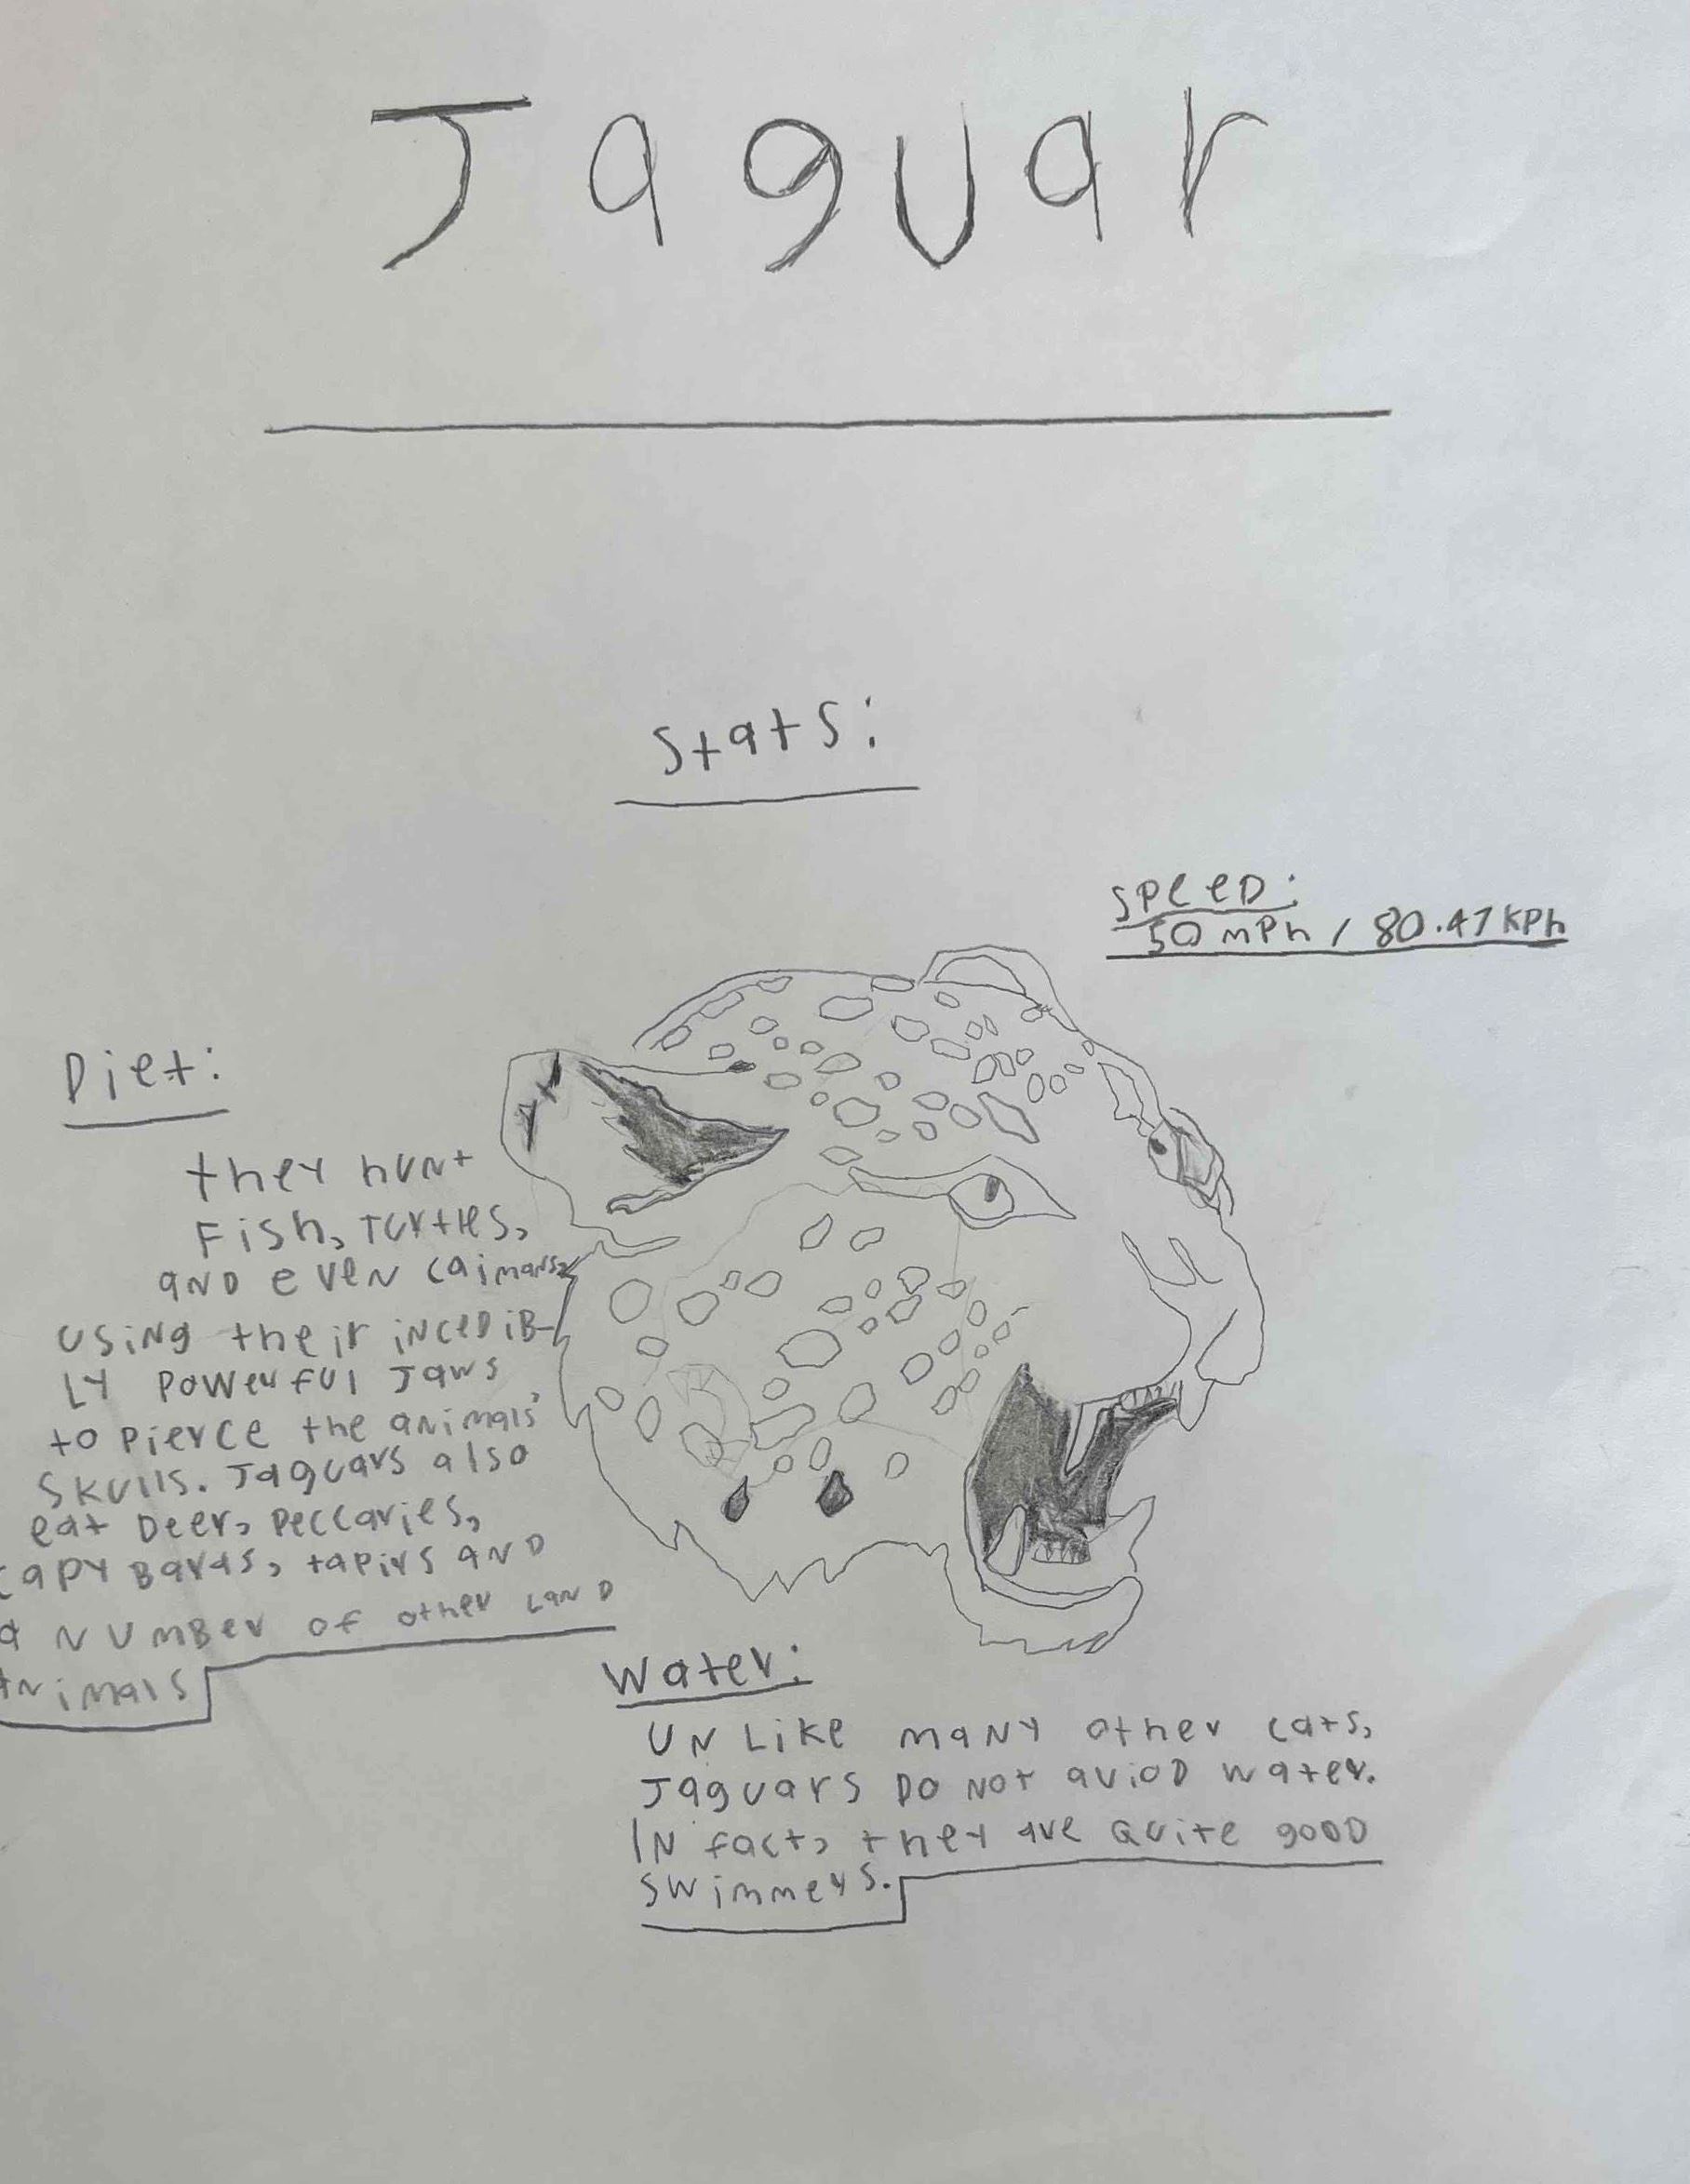 Jaguar
Stats:
SPeeD:
50 mPh / 80.47 KPh
Diet:
they hunt
Fish, Turtles,
AND eveN caimans,
usiNg their iNceDiB-
LY Powerful Jaws
to Pierce the aNimals'
SKulls. Jaguars also
eat Deer, Peccaries,
capyBaras, tapirs AND
a NumBer of other LaND
ANimals
Water:
UNLike maNY other cats,
Jaguars Do Not avioD water.
IN fact, they are Quite gooD
swimmers.